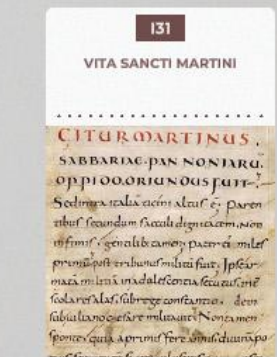 I31
VITA SANCTI MARTINI
CITUR MARTINUS.
SABBARIAE·PAN NONIARU.
OPPIDO.ORIUNDUS FUIT.
Sed intra italia ticini altus ẽ. Paren
tibus secundum saeculi dignitatem. Non
infimis. gentilib; tamen. pater ei miles
primũ post tribunus militũ fuit; Ipse ar
matã militiã in adulescentia secutus int̃
scolares alas sub rege constantio. dein
sub iuliano caesare militavit; Non tamen
sponte, quia a primis fere annis divinã po